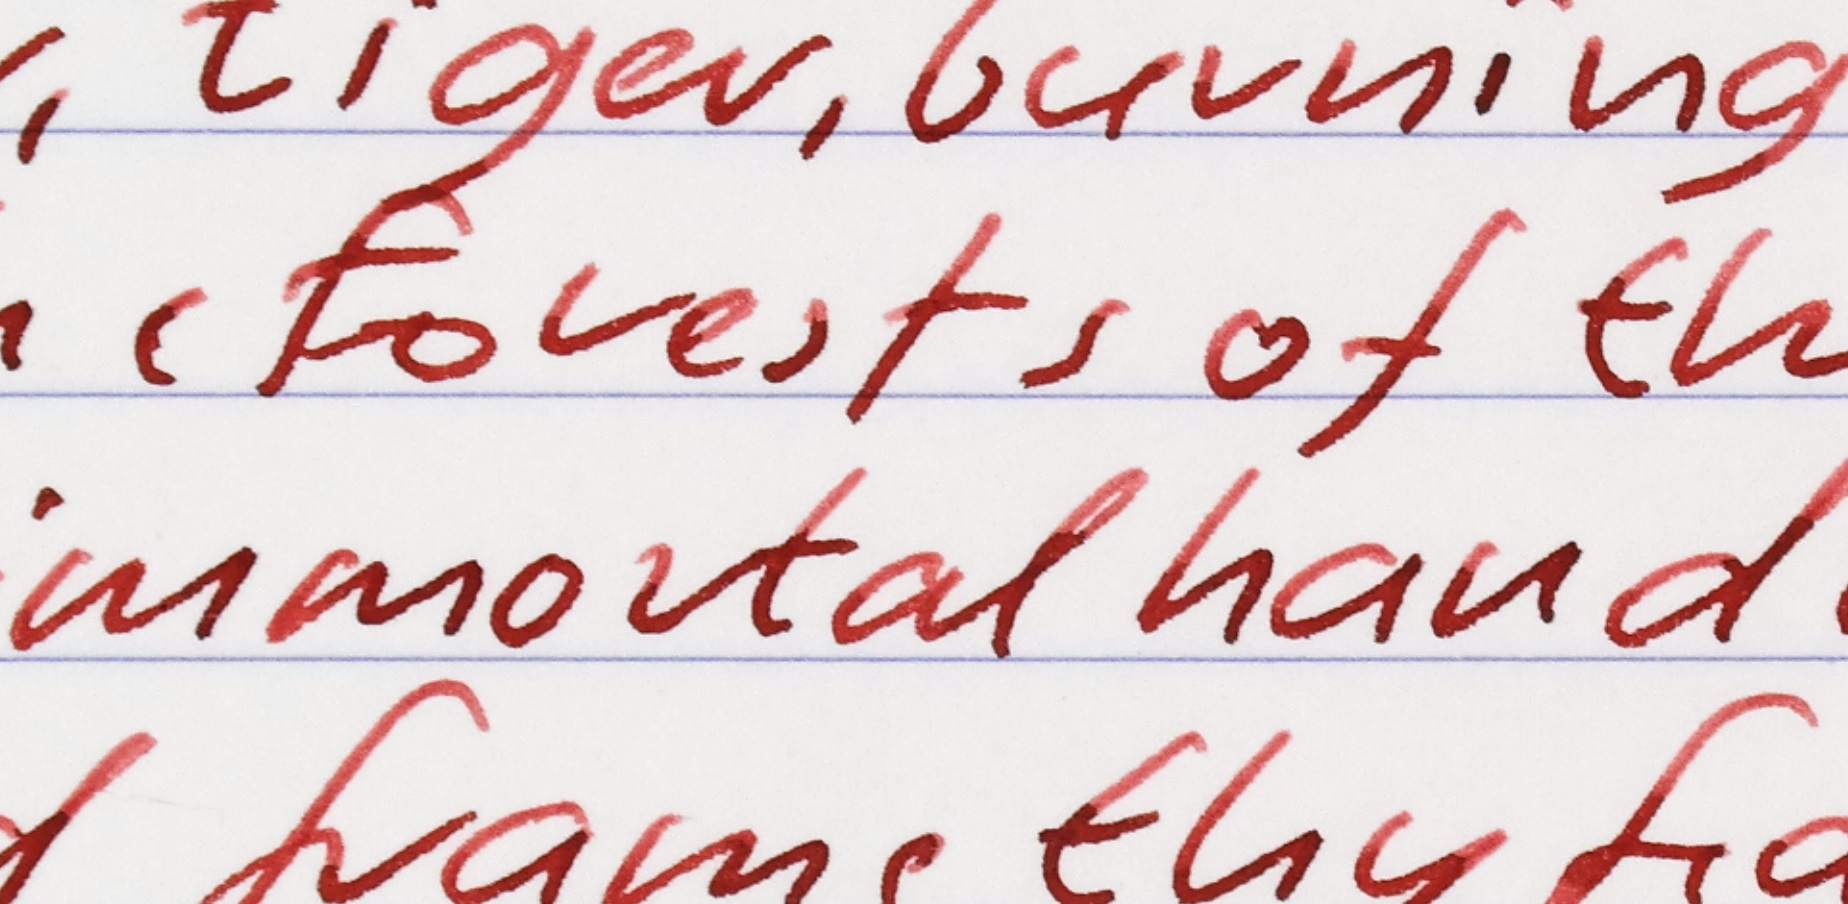 , tiger, burning
e forests of th
immortal hand
d frame thy fa